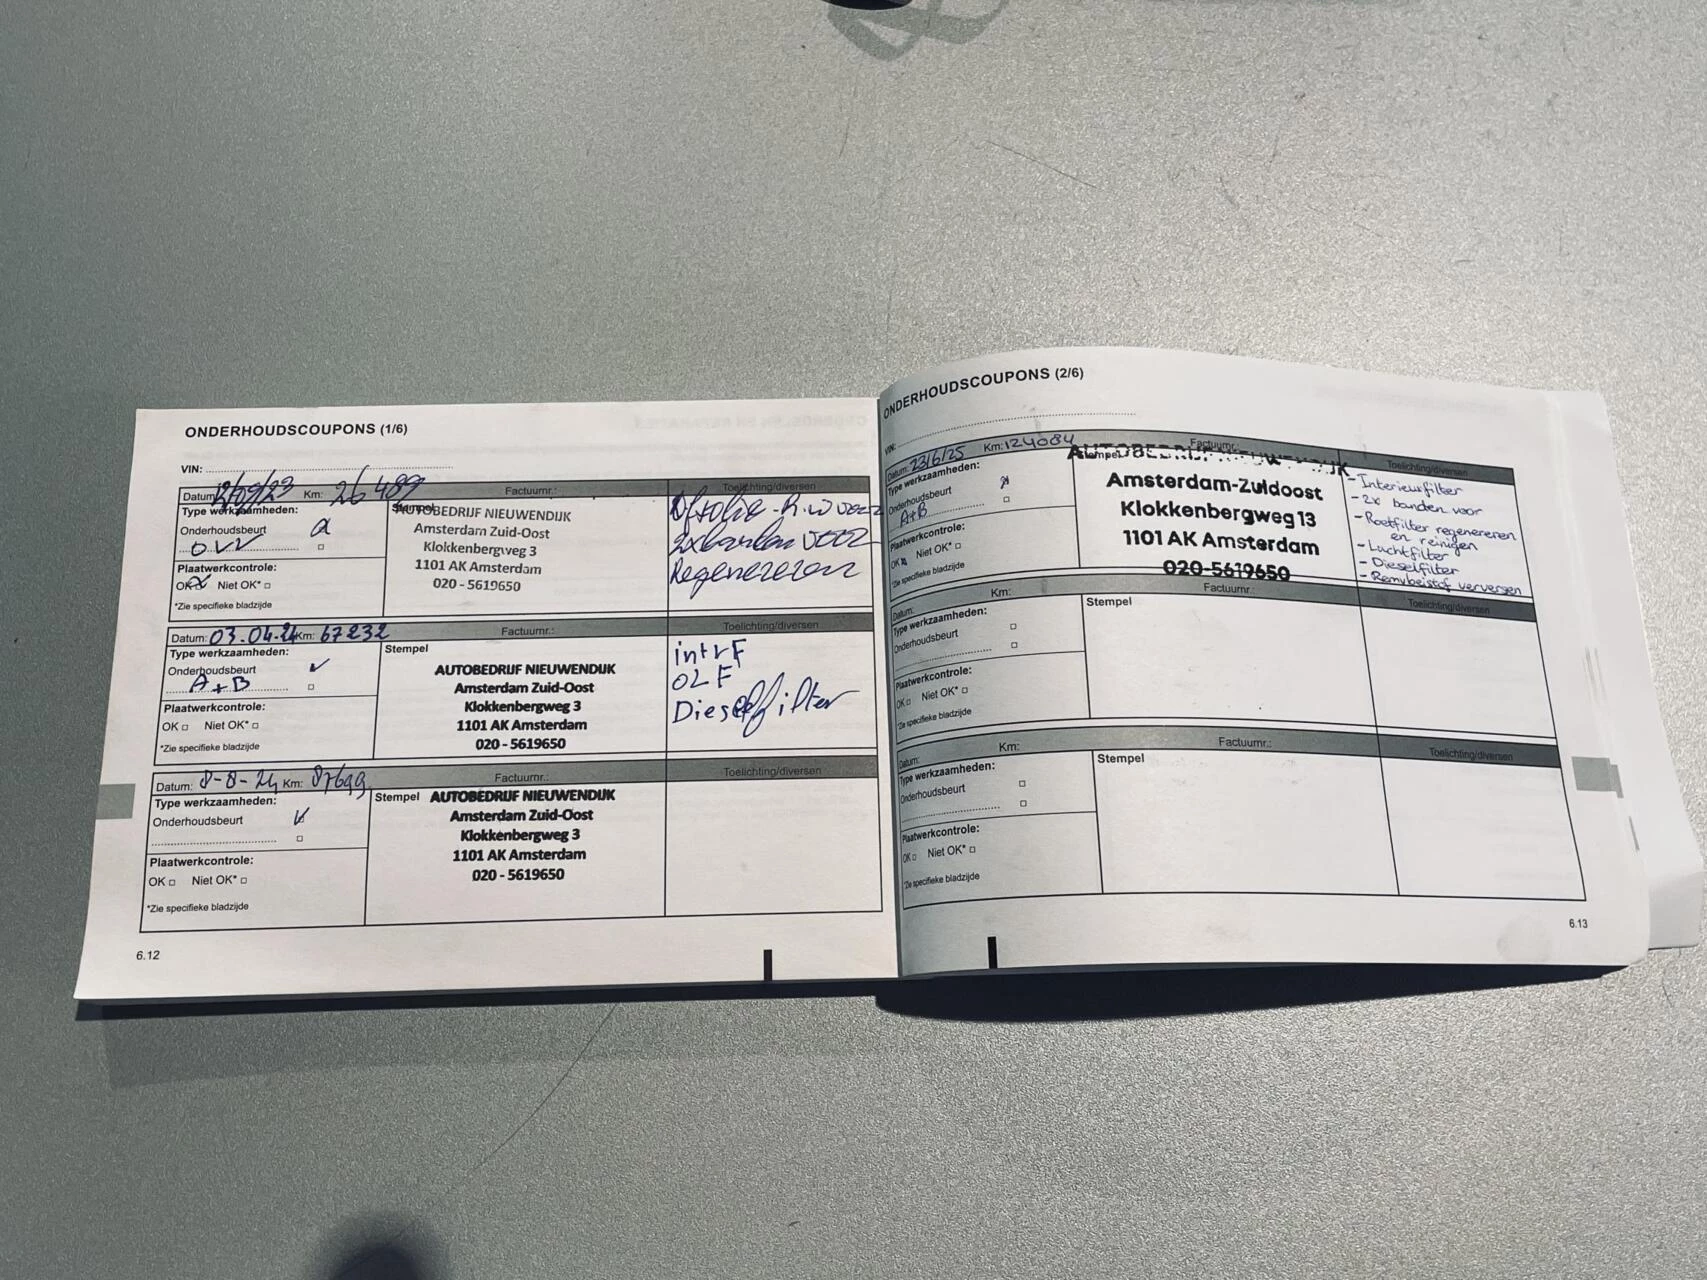 ONDERHOUDSCOUPONS (1/6)
VIN:
Datum: 12/09/23 Km: 26 489 Factuurnr.: Toelichting/diversen
Type werkzaamheden:
Onderhoudsbeurt
OVV
Plaatwerkcontrole:
OK Niet OK*
*Zie specifieke bladzijde
Stempel
AUTOBEDRIJF NIEUWENDIJK
Amsterdam Zuid-Oost
Klokkenbergveg 3
1101 AK Amsterdam
020 - 5619650
2x banden voor
Regenereren
Datum: 03.04.24 Km: 67232 Factuurnr.: Toelichting/diversen
Type werkzaamheden:
Onderhoudsbeurt
A+B
Plaatwerkcontrole:
OK Niet OK*
*Zie specifieke bladzijde
Stempel
AUTOBEDRIJF NIEUWENDIJK
Amsterdam Zuid-Oost
Klokkenbergweg 3
1101 AK Amsterdam
020 - 5619650
intrF
OLF
Dieselfilter
Datum: 8-8-24 Km: Factuurnr.: Toelichting/diversen
Type werkzaamheden:
Onderhoudsbeurt
Plaatwerkcontrole:
OK Niet OK*
*Zie specifieke bladzijde
Stempel
AUTOBEDRIJF NIEUWENDIJK
Amsterdam Zuid-Oost
Klokkenbergweg 3
1101 AK Amsterdam
020 - 5619650
6.12
ONDERHOUDSCOUPONS (2/6)
VIN:
Datum: 23/6/25 Km: 124084 Factuurnr.: Toelichting/diversen
Type werkzaamheden:
Onderhoudsbeurt
A+B
Plaatwerkcontrole:
OK Niet OK*
*Zie specifieke bladzijde
Stempel
AUTOBEDRIJF NIEUWENDIJK
Amsterdam-Zuidoost
Klokkenbergweg 13
1101 AK Amsterdam
020-5619650
- Interieurfilter
- 2x banden voor
- Roetfilter regenereren
en reinigen
- Luchtfilter
- Dieselfilter
- Remvloeistof verversen
Datum: Km: Factuurnr.: Toelichting/diversen
Type werkzaamheden:
Onderhoudsbeurt
Plaatwerkcontrole:
OK Niet OK*
*Zie specifieke bladzijde
Stempel
Datum: Km: Factuurnr.: Toelichting/diversen
Type werkzaamheden:
Onderhoudsbeurt
Plaatwerkcontrole:
OK Niet OK*
*Zie specifieke bladzijde
Stempel
6.13